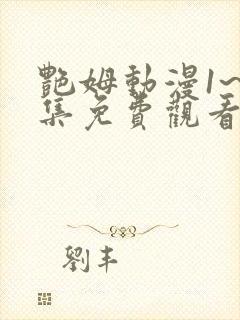 艷姆動漫1~
集免費觀看
劉丰